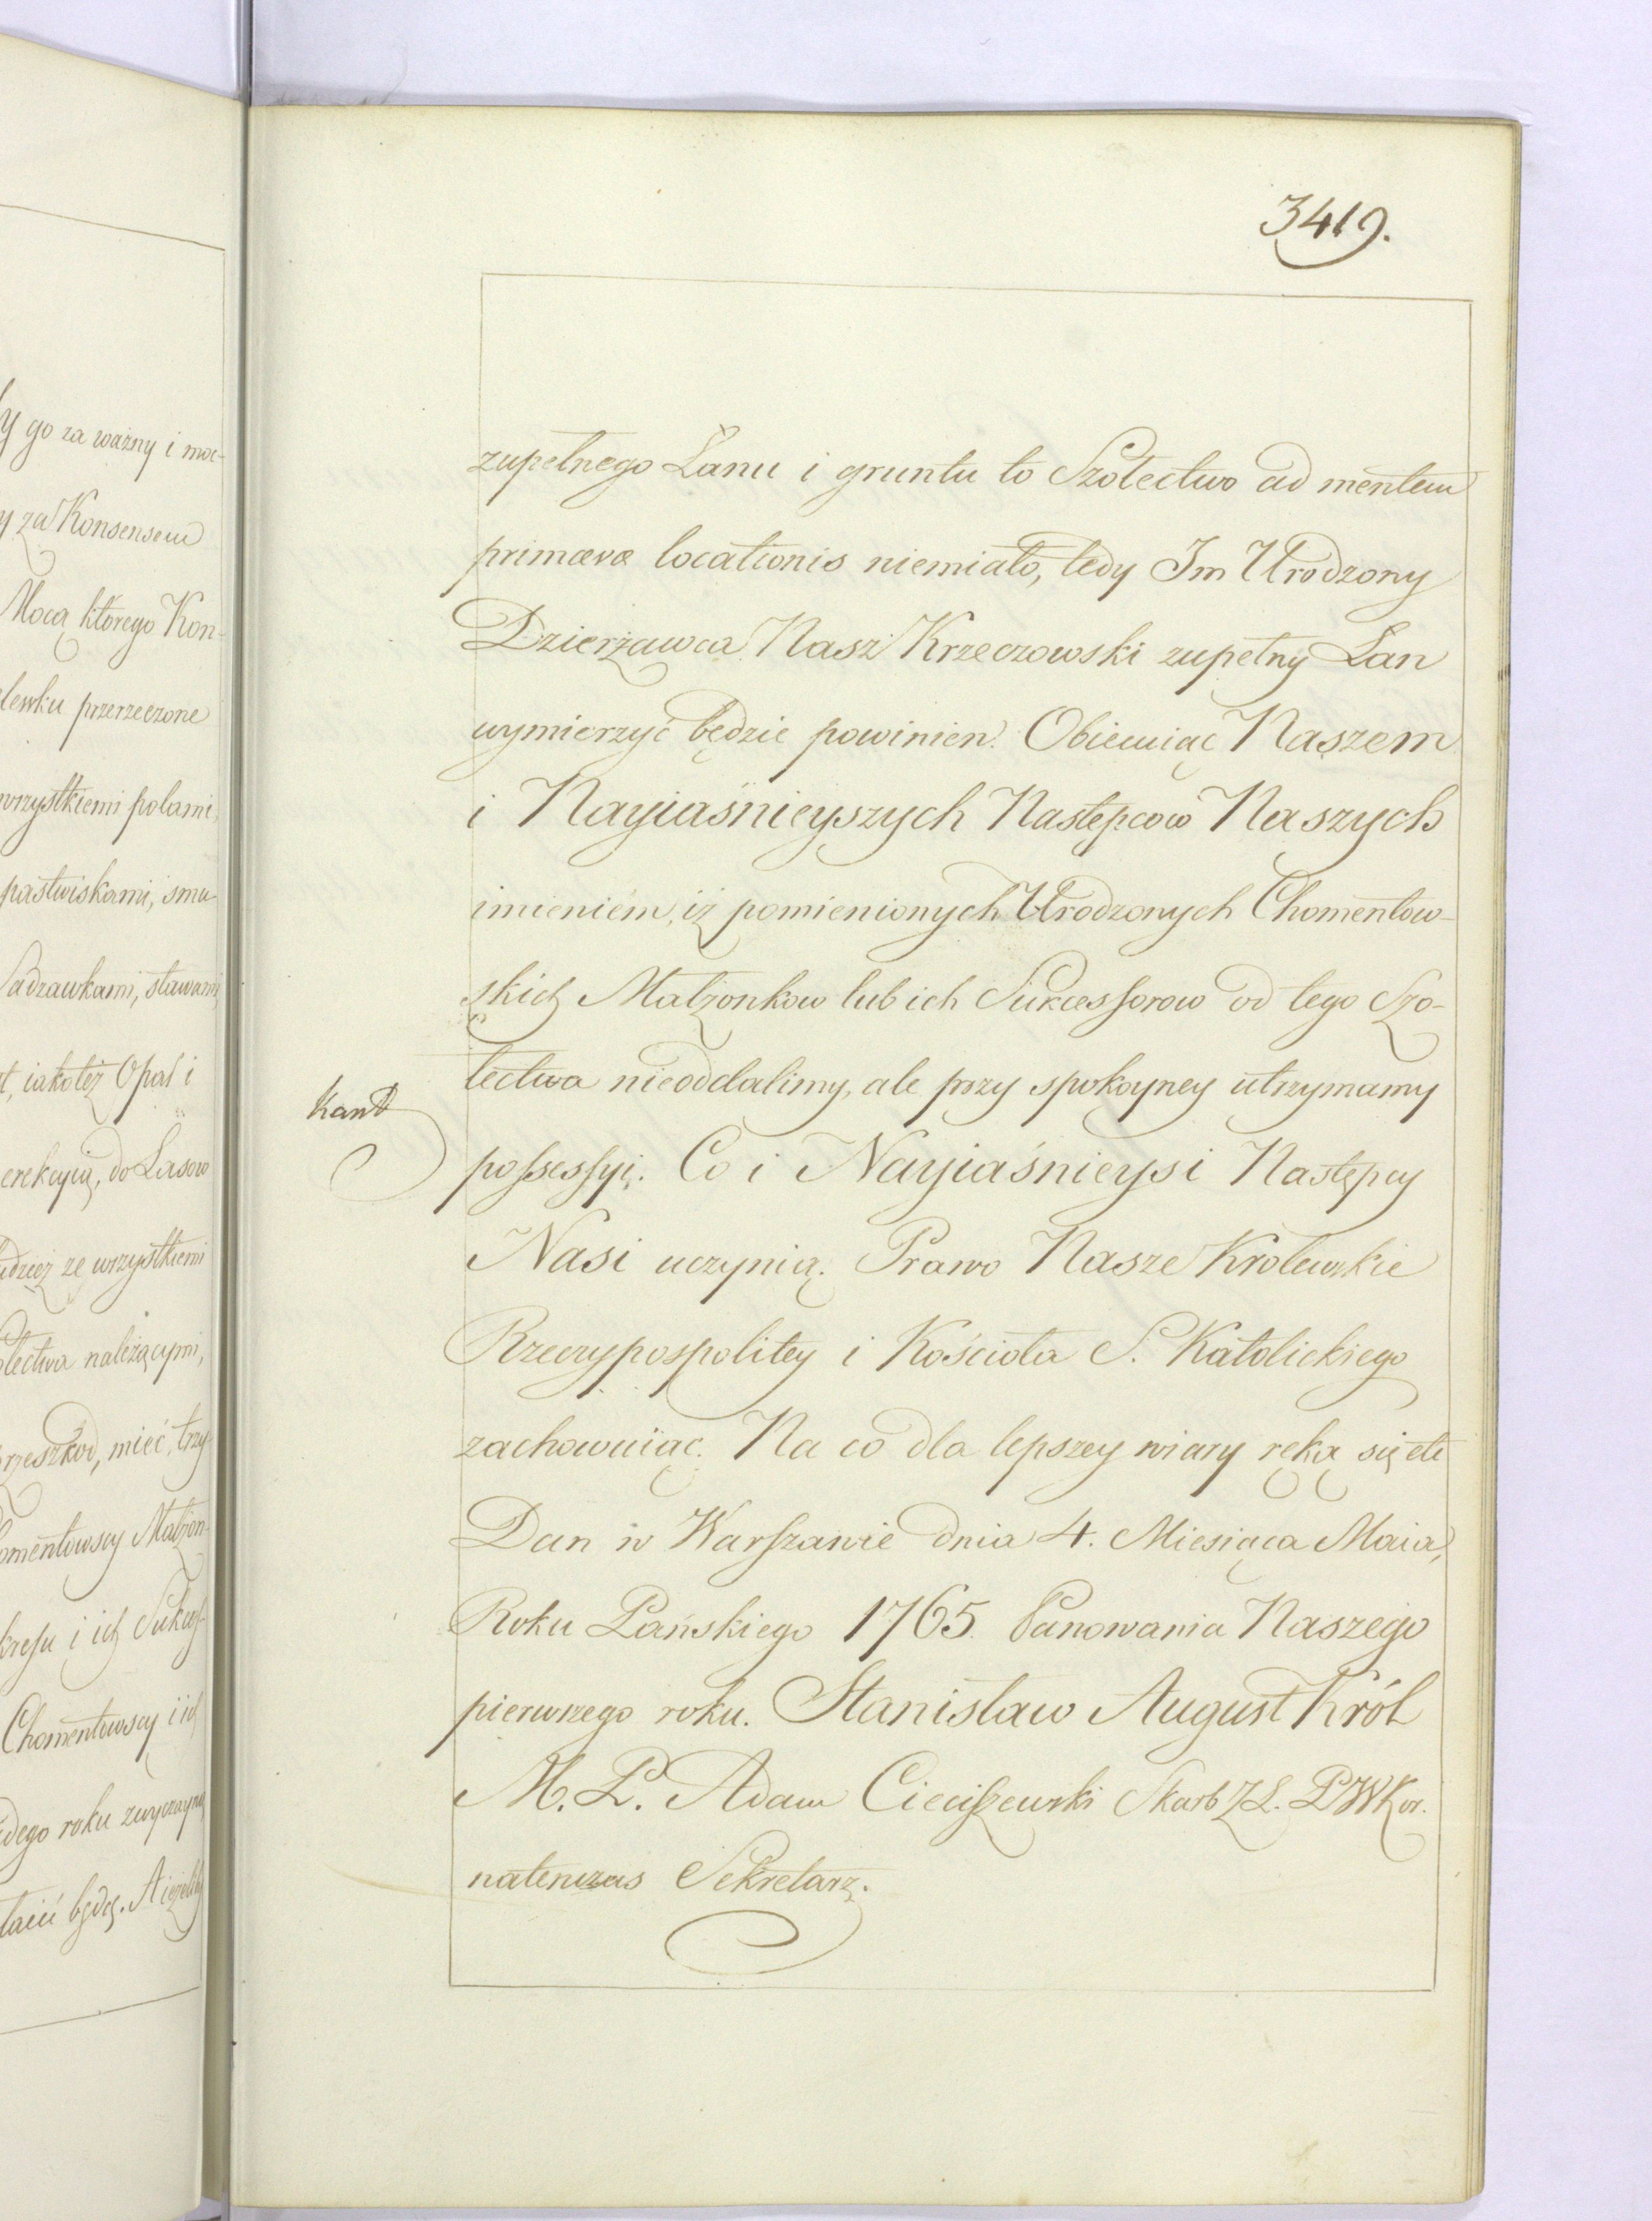 y go za ważny i moc-
y za Konsensem
Mocą którego Kon-
lewku przerzeczone
wszystkiemi polami,
pastwiskami, smu-
Sadzawkami, stawami,
t, iakoteż Opał i
erekcyią, do Lasow
udzież ze wszystkiemi
olectwa należącymi,
przeszkod, mieć, trzy-
omentowscy Małżon-
kresu i ich Sukces-
Chomentowscy i ich
dego roku zwyczayną
łacić będą. A ieżeliby
3419.
zupełnego Łanu i gruntu to Szołectwo ad mentem
primævæ locationis niemiało, tedy Im Urodzony
Dzierżawca Nasz Krzeczowski zupełny Łan
wymierzyć będzie powinien. Obiecuiąc Naszem
i Nayiaśnieyszych Następcow Naszych
imieniem, iż pomienionych Urodzonych Chomentow-
skich Małżonkow lub ich Sukcessorow od tego Szo-
łectwa nieoddalimy, ale przy spokoyney utrzymamy
possessyi. Co i Nayiaśnieysi Następcy
Nasi uczynią. Prawo Nasze Krolewskie
Rzeczypospolitey i Kościoła S. Katolickiego
zachowuiąc. Na co dla lepszey wiary ręką się etc
Dan w Warszawie dnia 4. Miesiąca Maia,
Roku Pańskiego 1765. Panowania Naszego
pierwszego roku. Stanisław August Król
M. P. Adam Cieciszewski Skarb Z. L. P W Kor.
natenczas Sekretarz.
kant